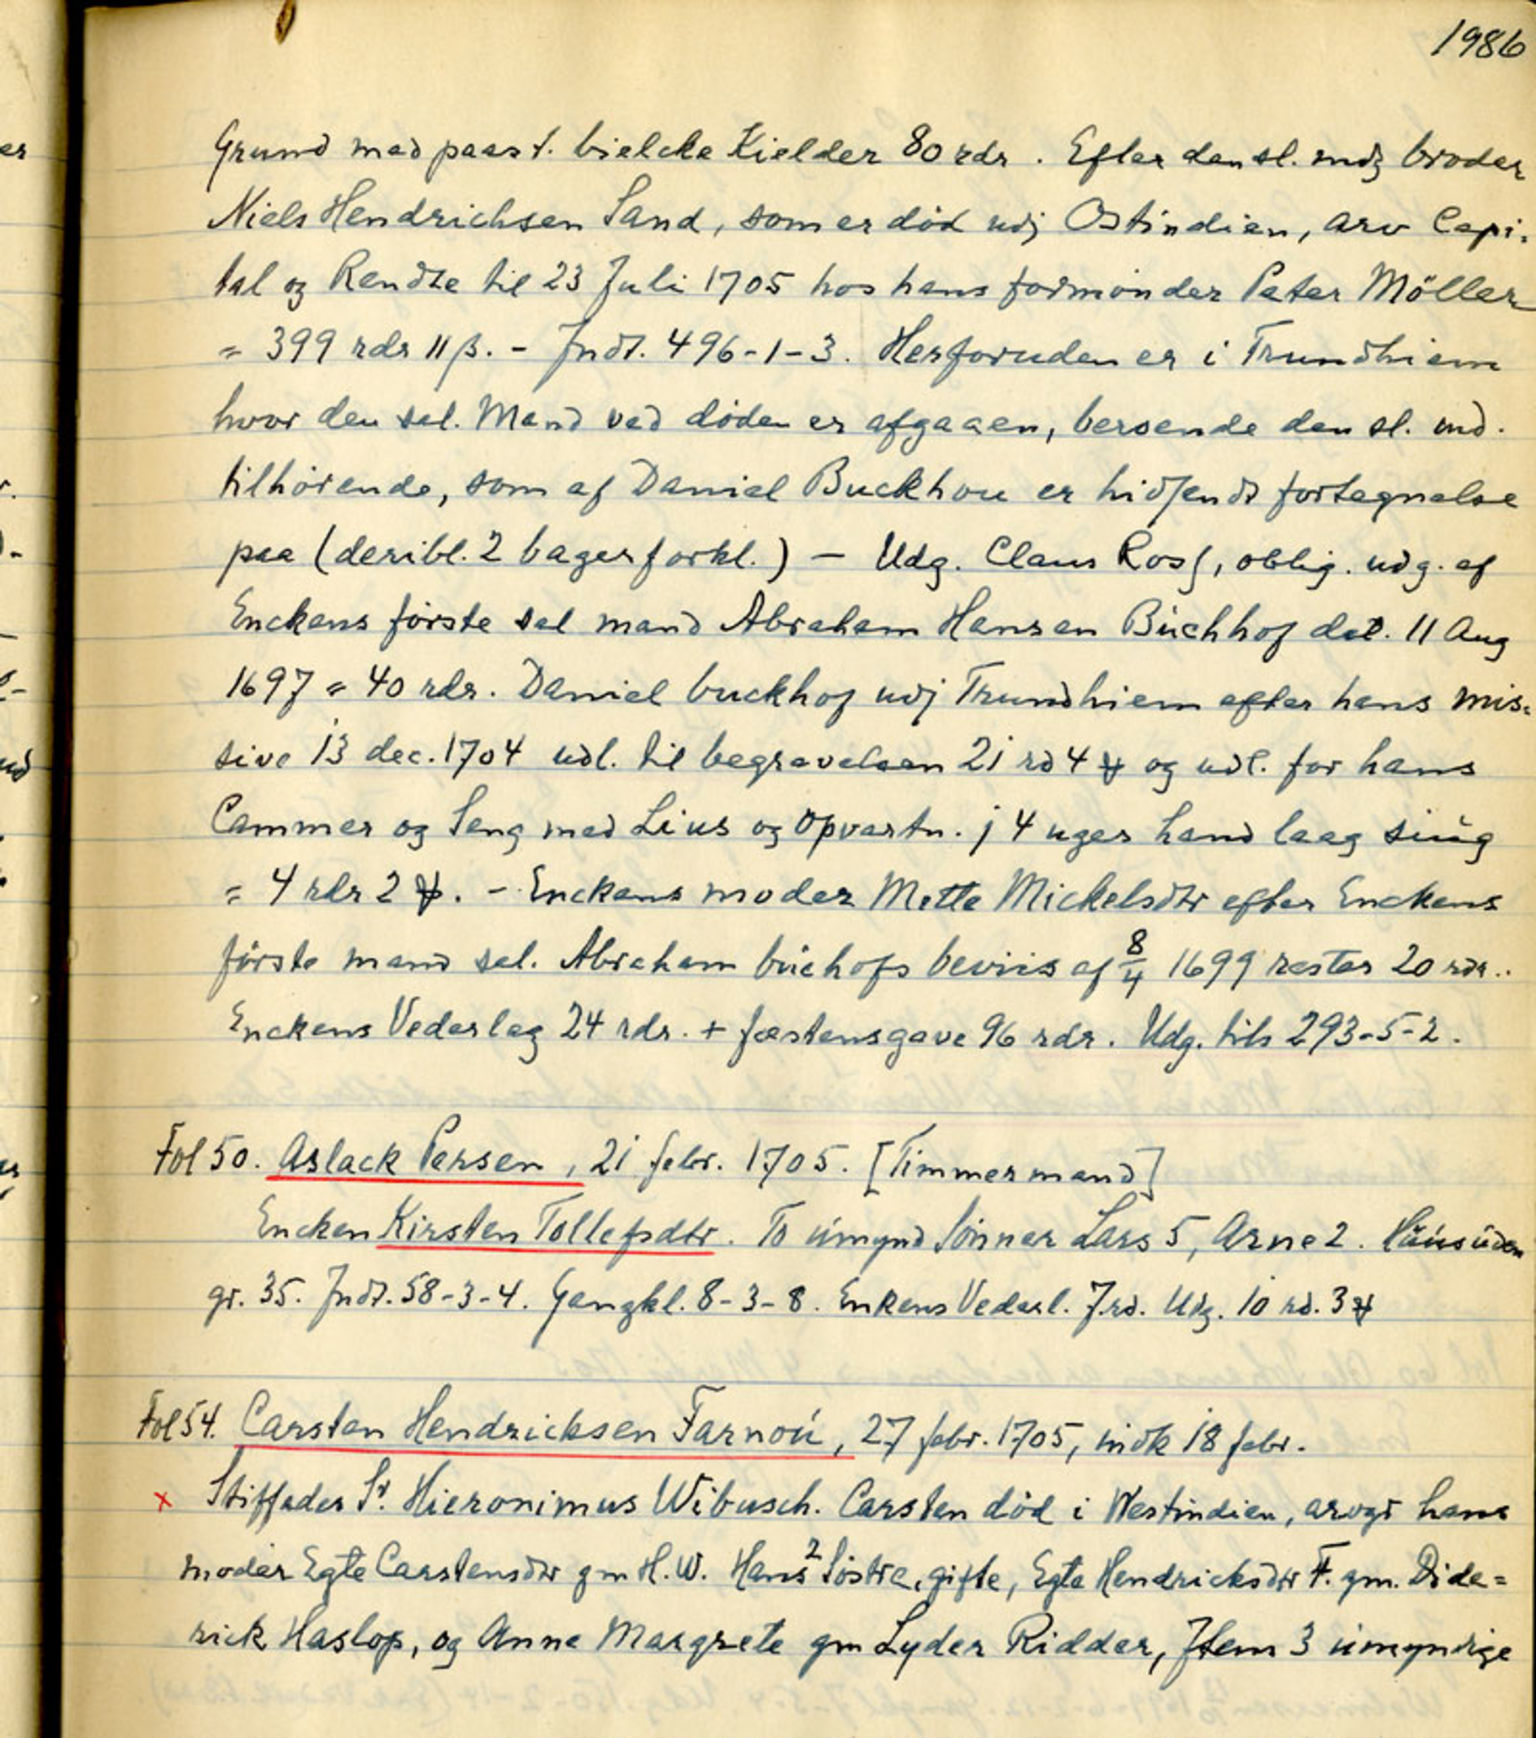 1986
Grund med paast. bielcke Kielder 80 rdr. Efter den sl. mdz broder
Niels Hendrichsen Sand, som er död udj Ostindien, arv Capi:
tal og Rendte til 23 Juli 1705 hos hans formönder Peter Möller
= 399 rdr 11 β. - Jndt. 496-1-3. Herforuden er i Trundhiem
hvor den sal. Mand ved döden er afgaaen, beroende den sl. md.
tilhörende, som af Daniel Buckhou er hidsendt fortegnelse
paa (deribl. 2 bagerforkl.) - Udg. Claus Ross, oblig. udg. af
Enckens förste sal mand Abraham Hansen Büchhof dat. 11 Aug
1697 = 40 rdr. Daniel buckhof udj Trundhiem efter hans mis:
sive 13 dec. 1704 udl. til begravelsen 21 rd 4 ₰ og udl. for hans
Cammer og Seng med Lius og opvartn. j 4 uger hand laag siüg
= 4 rdr 2 ₰. - Enckens moder Mette Mickelsdtr efter Enckens
förste mand sal. Abraham büchofs beviis af 8/4 1699 rester 20 rdr..
Enckens Vederlag 24 rdr. + fæstensgave 96 rdr. Udg. tils 293-5-2.
Fol 50. Aslack Persen, 21 febr. 1705. [Timmermand]
Encken Kirsten Tollefsdtr. To ümynd Sönner Lars 5, Arne 2. Hüus üden
gr. 35. Jndt. 58-3-4. Gangkl. 8-3-8. Enkens Vederl. 7 rd. Udg. 10 rd. 3 ₰
Fol 54. Carsten Hendricksen Farnoü, 27 febr. 1705, indk 18 febr.
x Stiffader Sr. Hieronimus Wibusch. Carsten död i Westindien, arvgr hans
moder Egte Carstensdtr gm H.W. Hans 2 Söstre, gifte, Egte Hendricksdtr F. gm. Dide=
rick Haslop, og Anne Margrete gm Lyder Ridder, Jtem 3 ümyndige